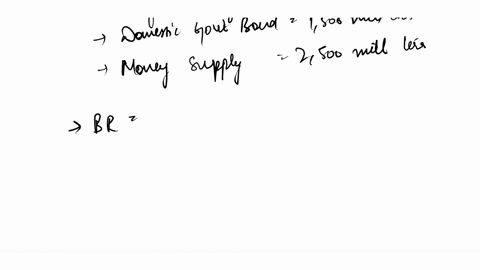 → Domestic Gout" Bond = 1,500 mill
→ Money Supply = 2,500 mill leis
→ BR =